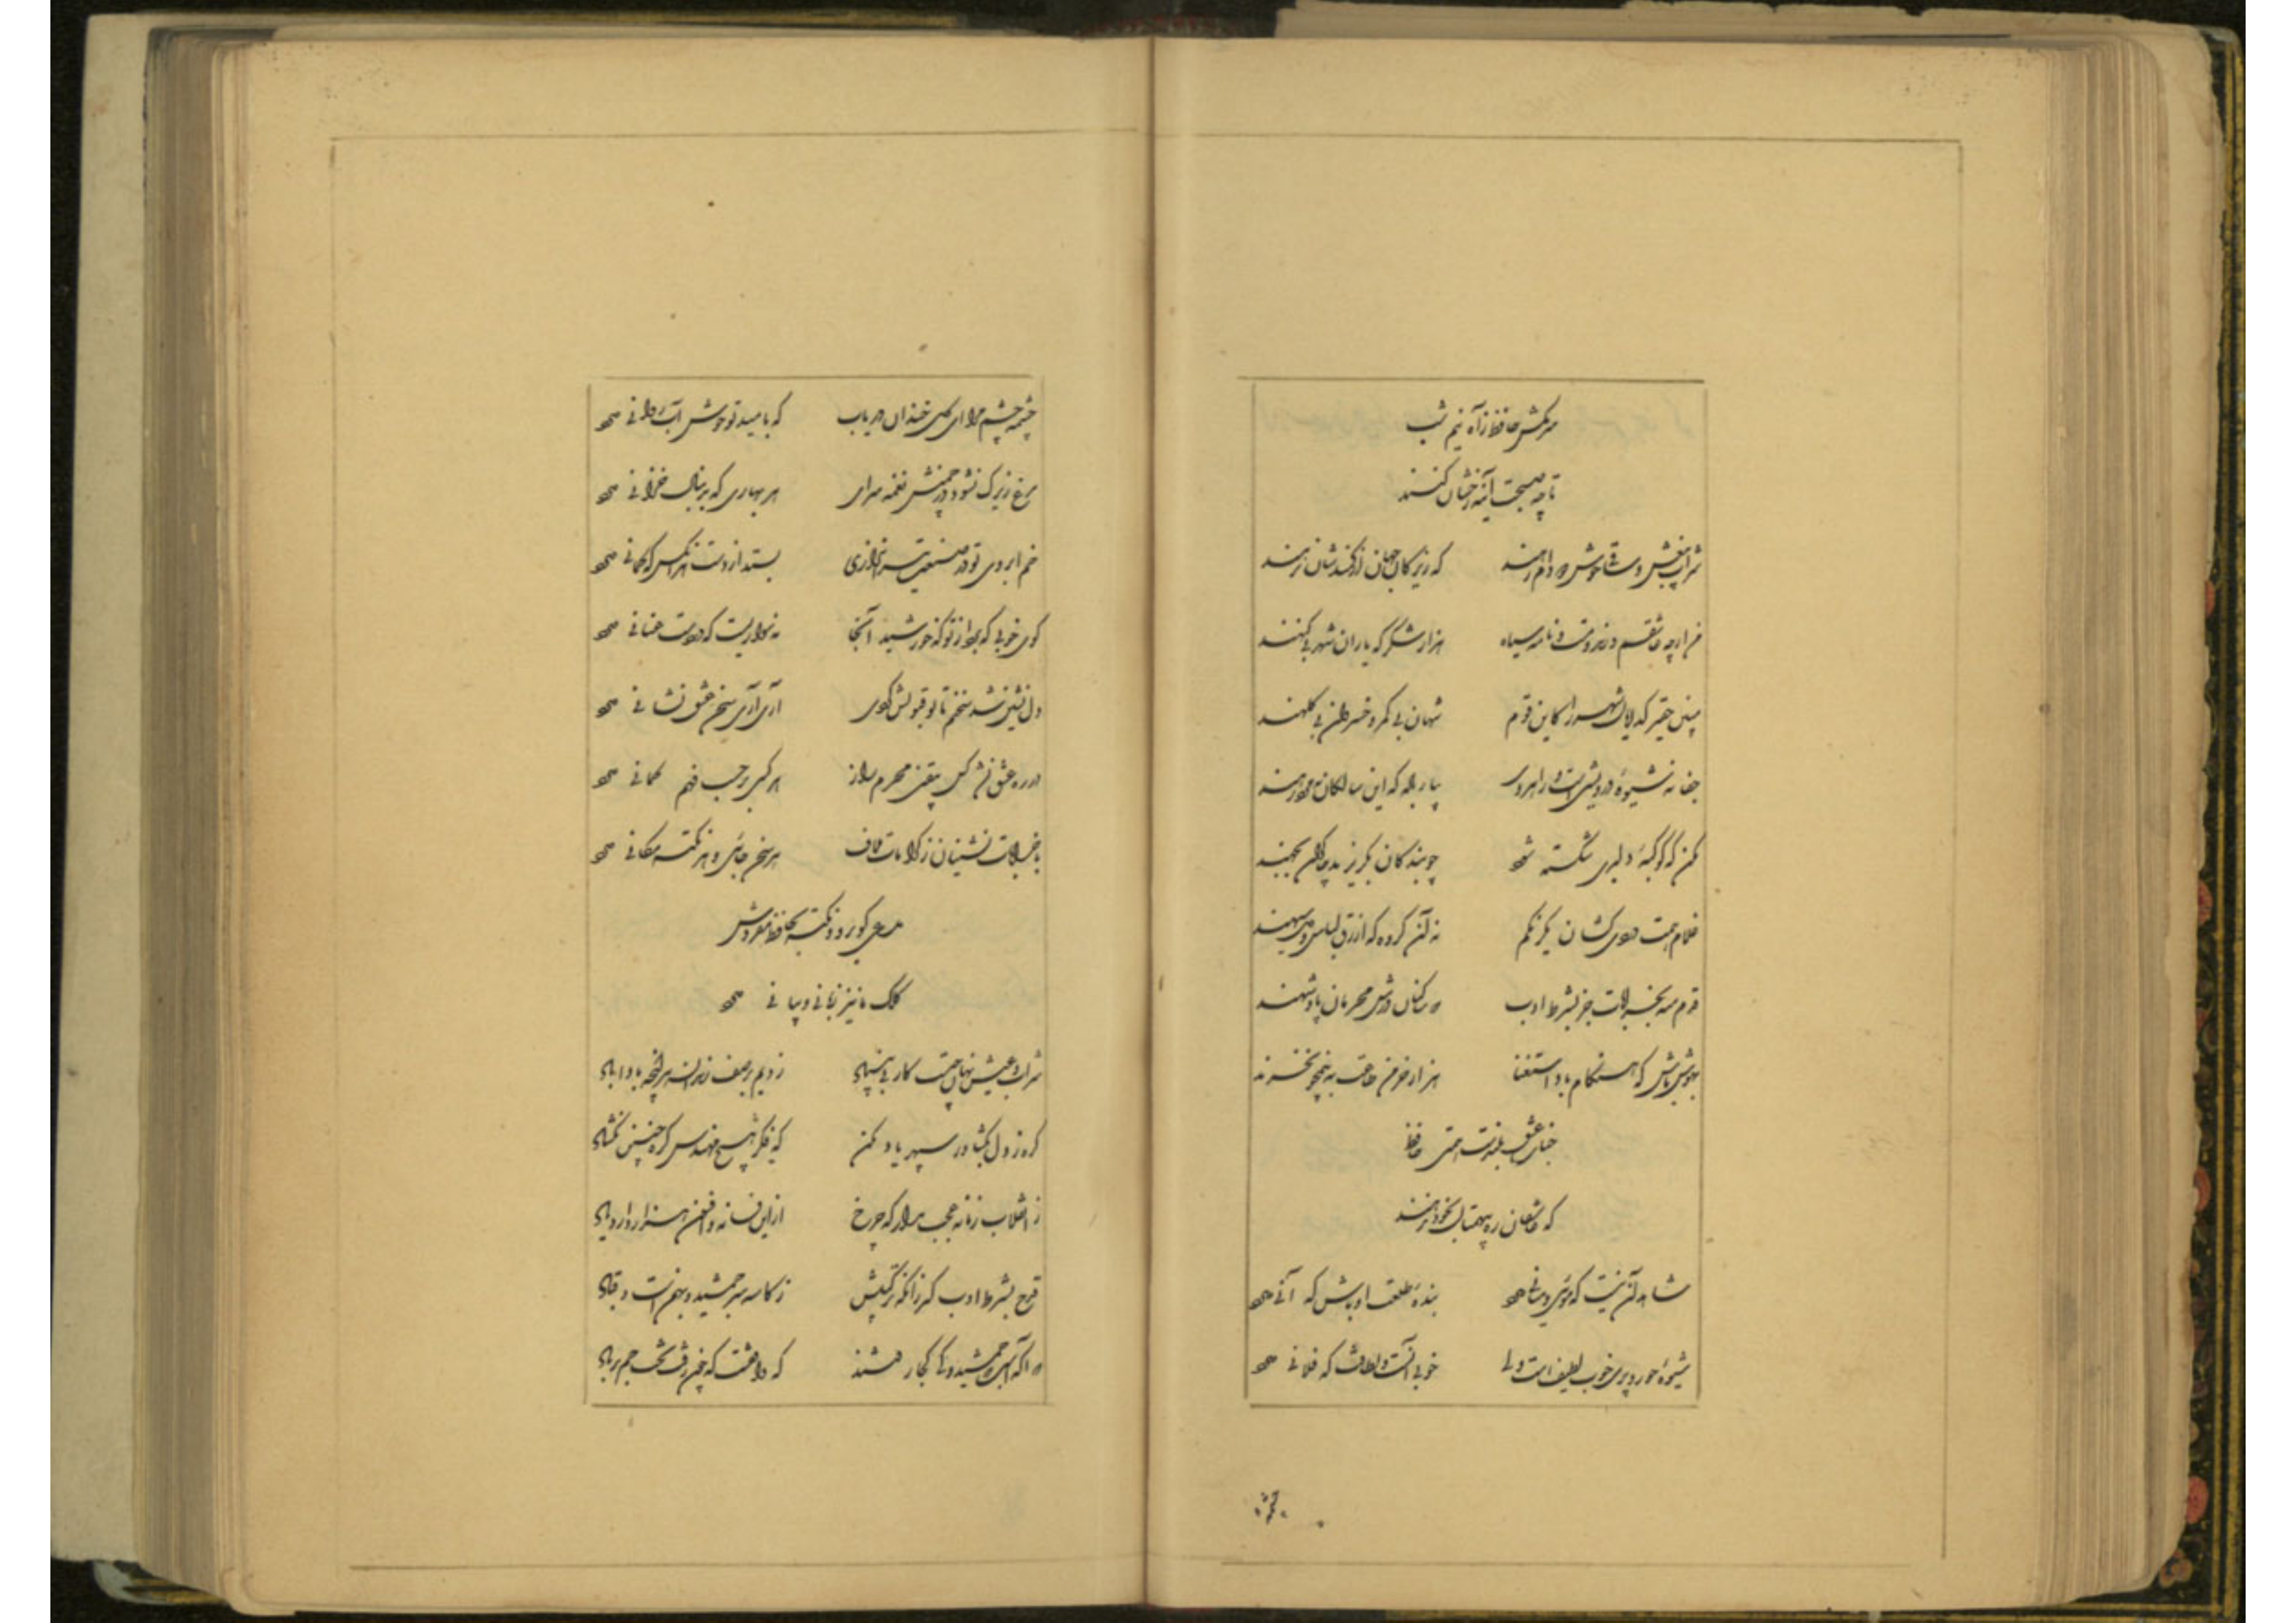 سرمکش حافظ ز آه نیم شب
تا چو صبحت آینه رخشان کنند
شراب بیغش و ساقی خوش دو دام رهند که زیرکان جهان از کمندشان نرهند
من ارچه عاشقم و رند و مست و نامه سیاه هزار شکر که یاران شهر بی گنهند
مبین حقیر گدایان شهر را کاین قوم شهان بی کمر و خسروان بی کلهند
جفا نه شیوهٔ درویشی است و راهروی بیار باده که این سالکان نه مرد رهند
مکن که کوکبهٔ دلبری شکسته شود چو بندگان بگریزند و چاکران بجهند
غلام همت دردی کشان یکرنگم نه آن گروه که ازرق لباس و دل سیهند
قدم منه بخرابات جز بشرط ادب که ساکنان درش محرمان پادشهند
بهوش باش که هنگام باد استغنا هزار خرمن طاعت به نیم جو نخرند
جناب عشق بلندست همتی حافظ
که عاشقان ره بیهمتان بخود ندهند
شاهد آن نیست که موئی و میانی دارد بندهٔ طلعت او باش که آنی دارد
شیوهٔ حور و پری خوب و لطیف است ولی خوبی آنست و لطافت که فلانی دارد
چشمه چشم مرا ای گل خندان دریاب که بامید تو خوش آب روانی دارد
مرغ زیرک نشود در چمنش نغمه سرای هر بهاری که بدنبال خزانی دارد
خم ابروی تو در صنعت تیراندازی بستد از دست هر آنکس که کمانی دارد
گوی خوبی که برد از تو که خورشید آنجا نه سواریست که در دست عنانی دارد
دل نشین شد سخنم تا تو قبولش کردی آری آری سخن عشق نشانی دارد
در ره عشق نشد کس بیقین محرم راز هر کسی بر حسب فهم گمانی دارد
با خرابات نشینان ز کرامات ملاف هر سخن جائی و هر نکته مکانی دارد
مدعی گو برو و نکته بحافظ مفروش
کلک ما نیز زبانی و بیانی دارد
شراب و عیش نهان چیست کار بی بنیاد زدیم بر صف رندان هر آنچه بادا باد
گره ز دل بگشا وز سپهر یاد مکن که فکر هیچ مهندس گره چنین نگشاد
ز انقلاب زمانه عجب مدار که چرخ ازین فسانه و افسون هزار دارد یاد
قدح بشرط ادب گیر زانکه ترکیبش ز کاسه سر جمشید و بهمن است و قباد
که آگه است که جمشید و کی کجا رفتند که واقفست که چون رفت تخت جم بر باد